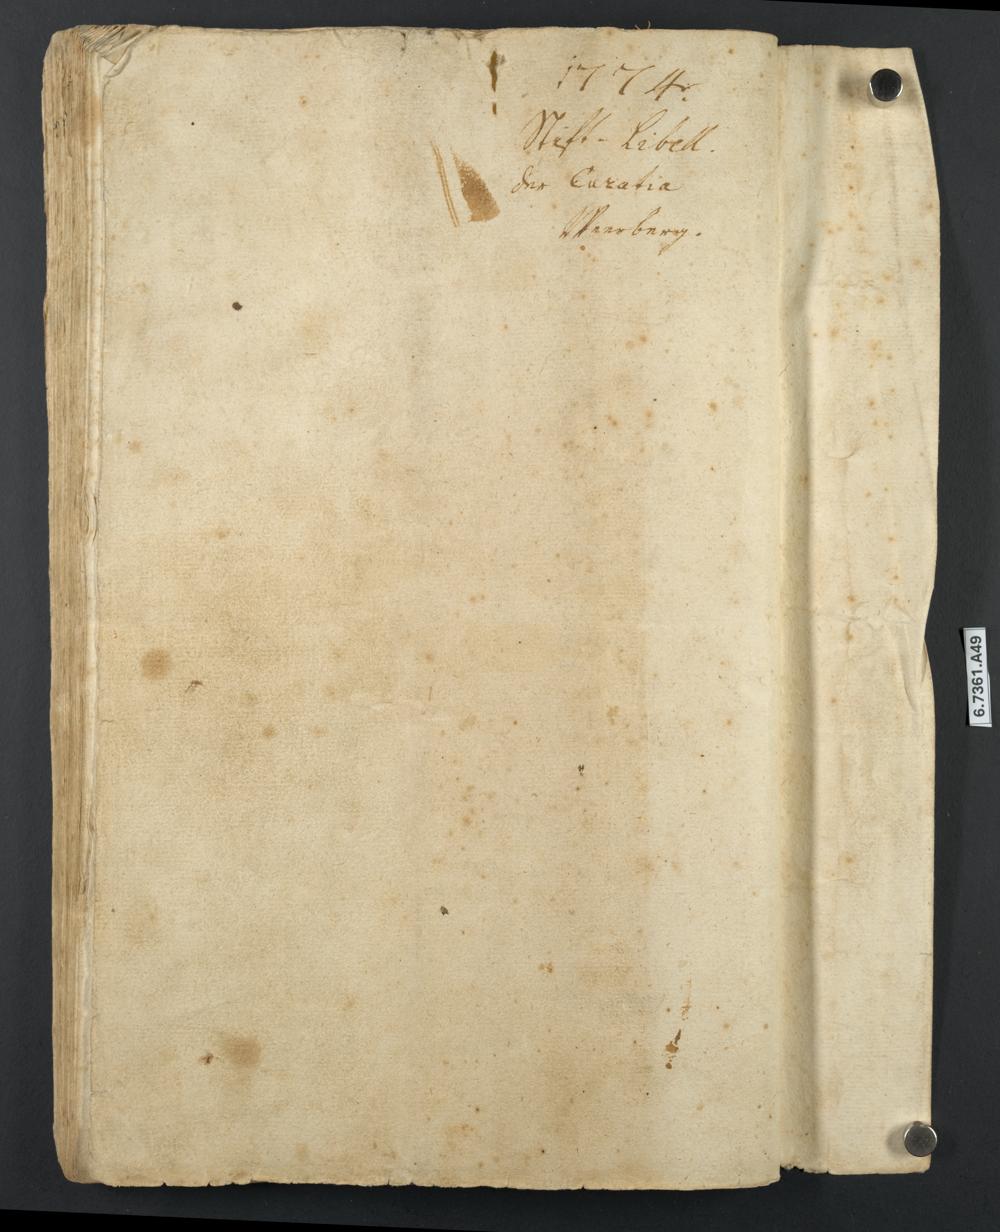 1774.
Stift-Libell.
der Curatia
Weerberg.
6.7361.A49